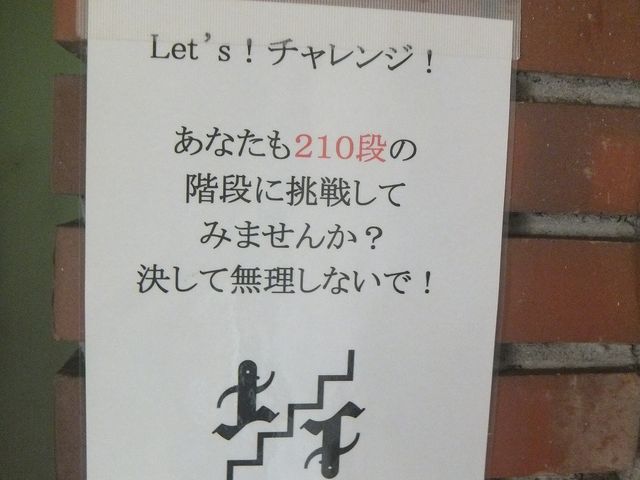 Let's！チャレンジ！
あなたも210段の
階段に挑戦して
みませんか？
決して無理しないで！